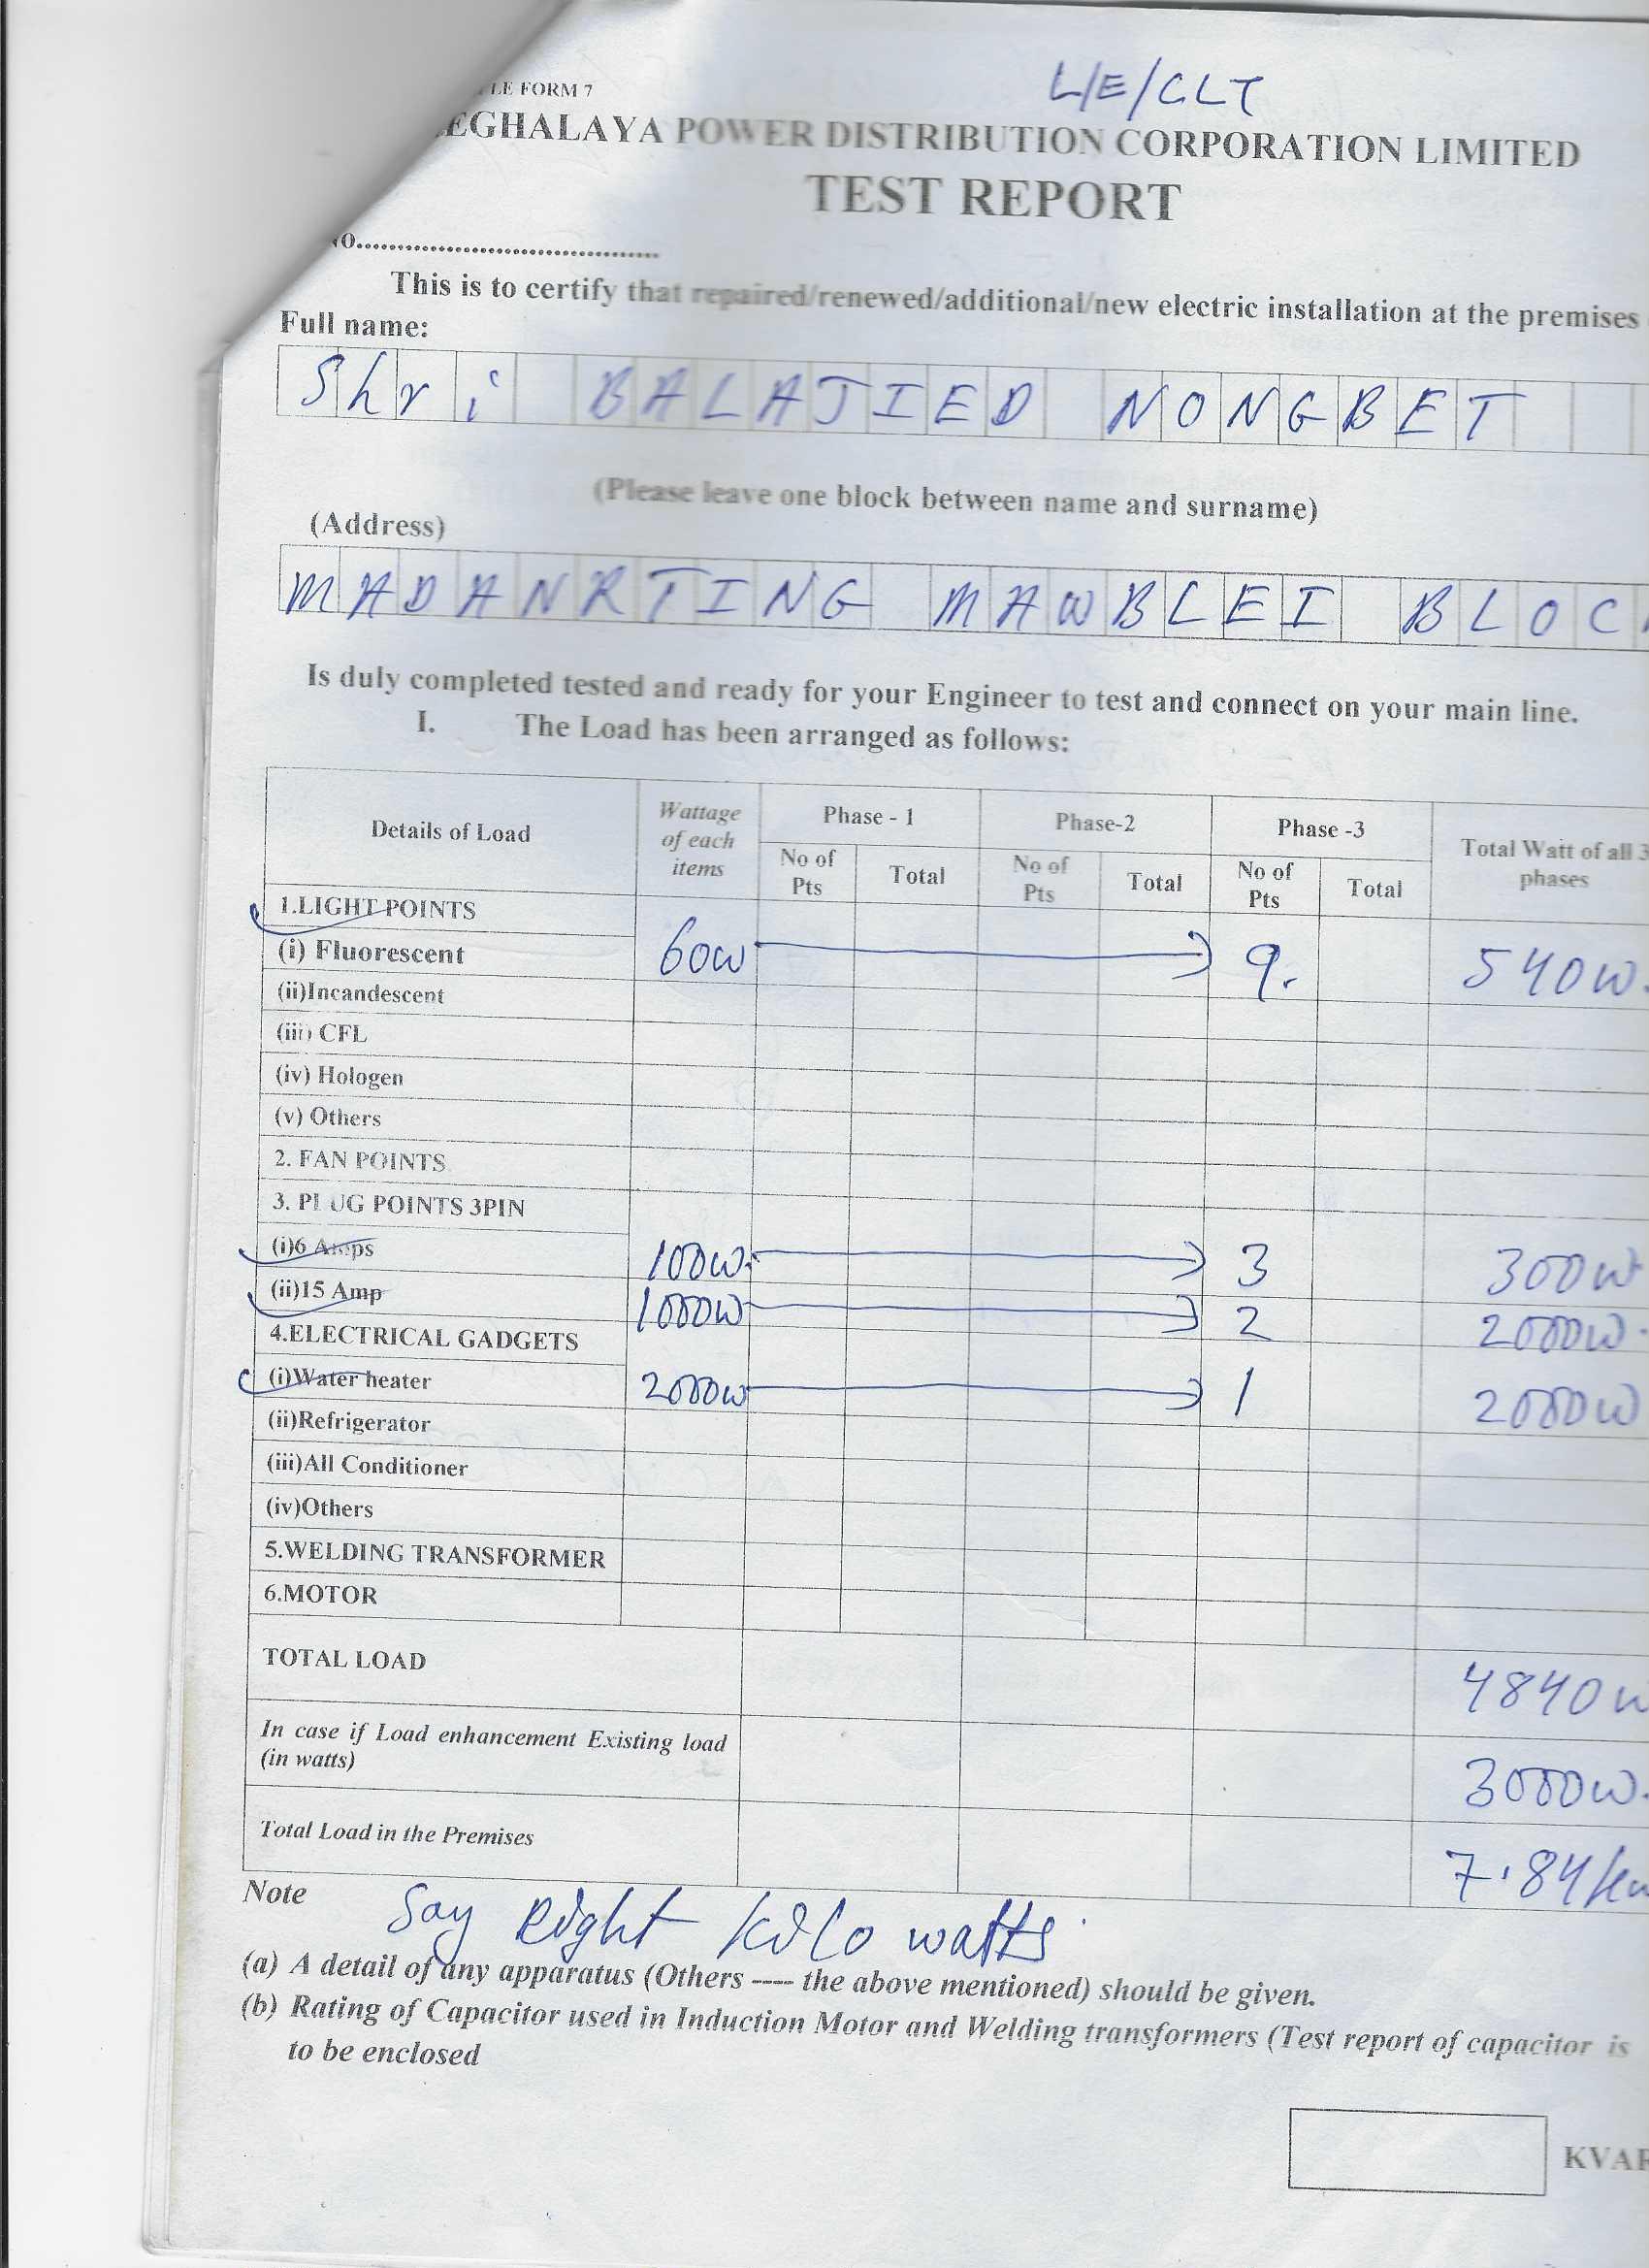 LE FORM 7
L/E/CLT
EGHALAYA POWER DISTRIBUTION CORPORATION LIMITED
TEST REPORT
NO..........................................
This is to certify that repaired/renewed/additional/new electric installation at the premises
Full name:
Shri BALAJIED NONGBET
(Please leave one block between name and surname)
(Address)
MADANRTING MAWBLEI BLOC
Is duly completed tested and ready for your Engineer to test and connect on your main line.
I. The Load has been arranged as follows:
Details of Load Wattage of each items Phase - 1 Phase-2 Phase -3 Total Watt of all 3 phases
No of Pts Total No of Pts Total No of Pts Total
1.LIGHT POINTS
(i) Fluorescent 60W 9. 540W.
(ii)Incandescent
(iii) CFL
(iv) Hologen
(v) Others
2. FAN POINTS
3. PLUG POINTS 3PIN
(i)6 Amps 100W. 3 300W
(ii)15 Amp 1000W 2 2000W.
4.ELECTRICAL GADGETS
(i)Water heater 2000W 1 2000W
(ii)Refrigerator
(iii)All Conditioner
(iv)Others
5.WELDING TRANSFORMER
6.MOTOR
TOTAL LOAD 4840
In case if Load enhancement Existing load (in watts) 3000W.
Total Load in the Premises 7.84
Note
Say Eight Kilo watts
(a) A detail of any apparatus (Others ---- the above mentioned) should be given.
(b) Rating of Capacitor used in Induction Motor and Welding transformers (Test report of capacitor is
to be enclosed
KVAR